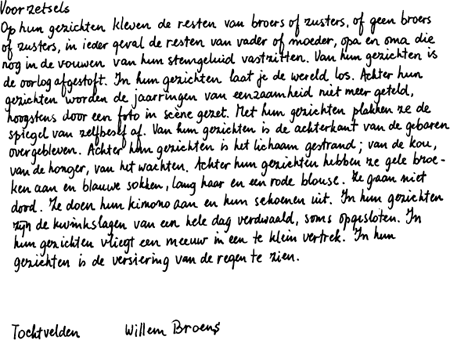 Voorzetsels
Op hun gezichten kleven de resten van broers of zusters, of geen broers
of zusters, in ieder geval de resten van vader of moeder, opa en oma die
nog in de vouwen van hun stemgeluid vastzitten. Van hun gezichten is
de oorlog afgestoft. In hun gezichten laat je de wereld los. Achter hun
gezichten worden de jaarringen van eenzaamheid niet meer geteld,
hoogstens door een foto in scène gezet. Met hun gezichten plakken ze de
spiegel van zelfbesef af. Van hun gezichten is de achterkant van de gebaren
overgebleven. Achter hun gezichten is het lichaam gestrand; van de kou,
van de honger, van het wachten. Achter hun gezichten hebben ze gele broe-
ken aan en blauwe sokken, lang haar en een rode blouse. Ze gaan niet
dood. Ze doen hun kimono aan en hun schoenen uit. In hun gezichten
zijn de kwinkslagen van een hele dag verdwaald, soms opgesloten. In
hun gezichten vliegt een meeuw in een te klein vertrek. In hun
gezichten is de versiering van de regen te zien.
Tochtvelden Willem Broens